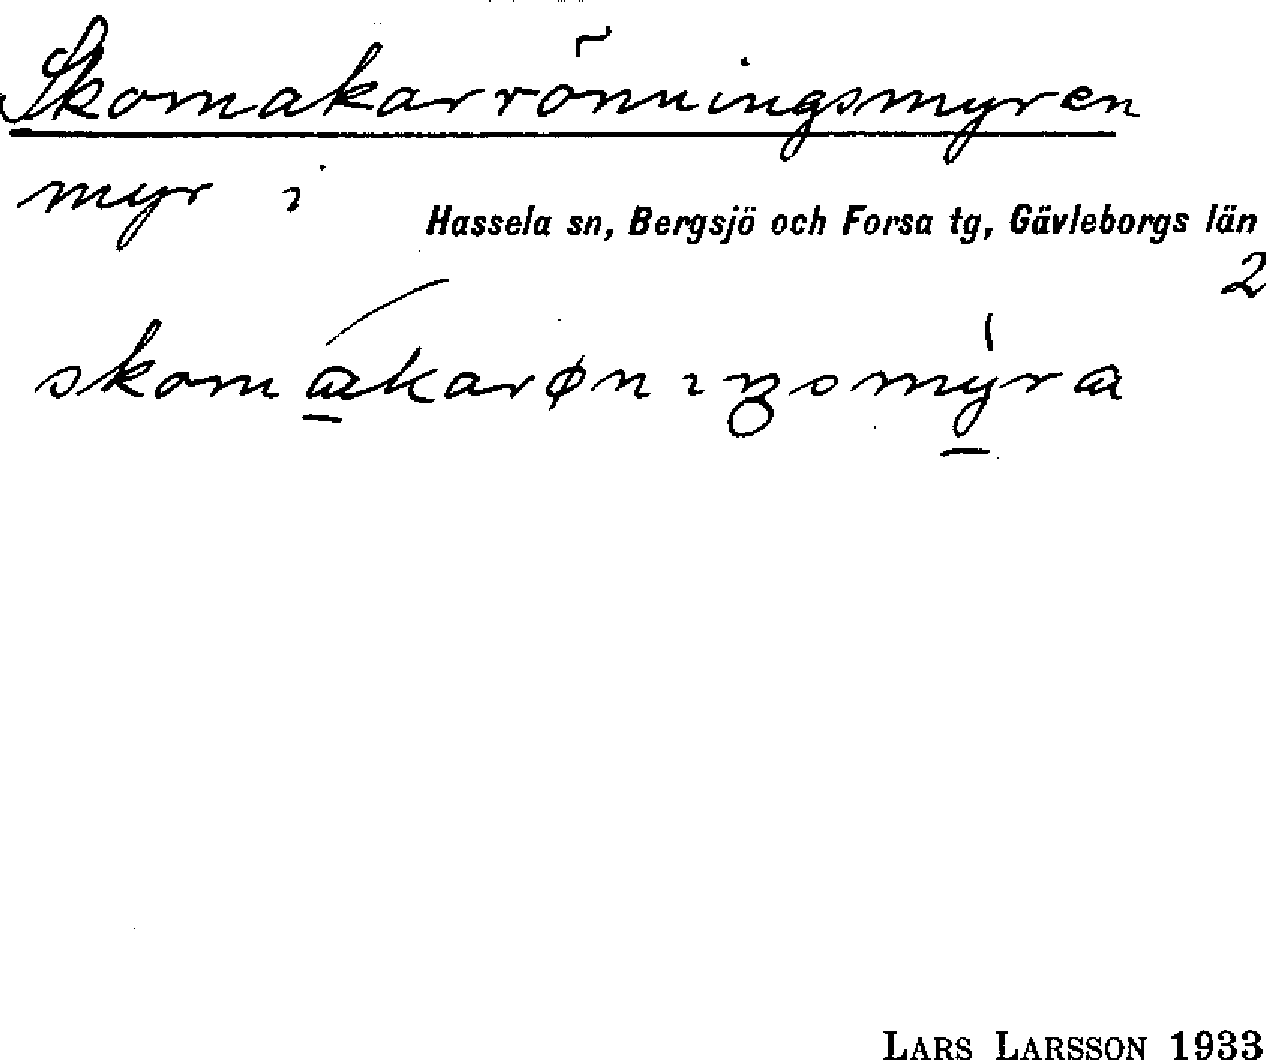 Skomakarrönningsmyren
myr i
Hassela sn, Bergsjö och Forsa tg, Gävleborgs län
2
skomakarøniŋsmyra
LARS LARSSON 1933